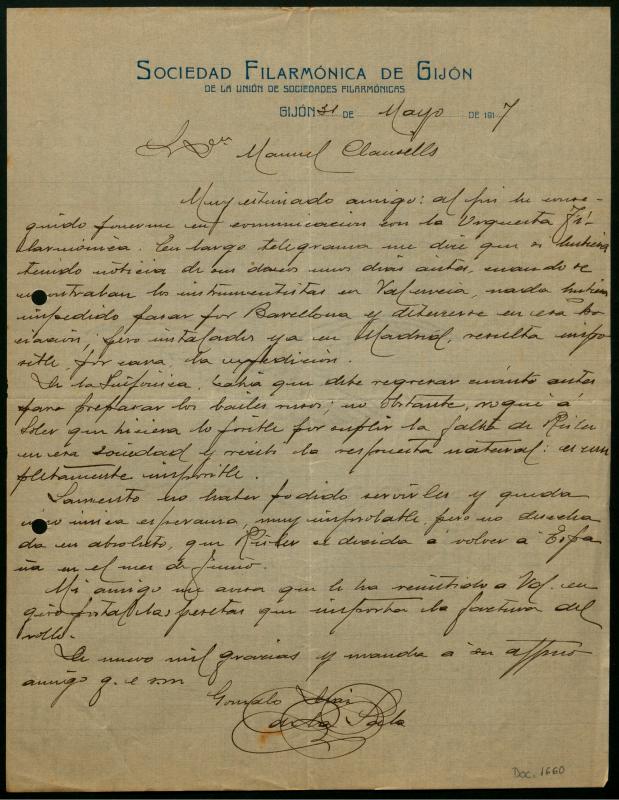 SOCIEDAD FILARMÓNICA DE GIJÓN
DE LA UNIÓN DE SOCIEDADES FILARMÓNICAS
GIJÓN 31 DE Mayo DE 1917
Manuel Clausells
Muy estimado amigo: al fin he conse-
guido ponerme en comunicación con la Orquesta Fi-
larmónica. En largo telegrama me dice que si hubiera
tenido noticia de sus deseos unos días antes, cuando se
encontraban los instrumentistas en Valencia, nada hubiera
impedido pasar por Barcelona y detenerse en esa Aso-
ciación; pero instalados ya en Madrid, resulta impo-
sible, por cara, la expedición.
De la Sinfónica, sabía que debe regresar cuánto antes
para preparar los bailes rusos; no obstante, rogué á
Soler que hiciera lo posible por suplir la falta de Risler
en esa sociedad y recibí la respuesta natural: es com
pletamente imposible.
Lamento no haber podido servirles y queda
como única esperanza, muy improbable pero no desecha
da en absoluto, que Risler se decida á volver á Espa
ña en el mes de Junio.
Mi amigo me avisa que le ha remitido a Vd. en
giro postal las pesetas que importa la factura del
rollo.
De nuevo mil gracias y mande á su affmo
amigo q. e s m
Gonzalo
de la
Doc. 1660